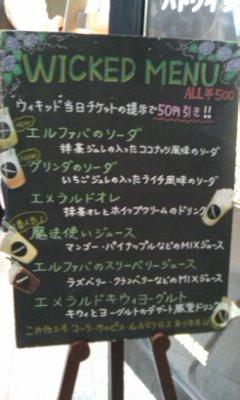 WICKED MENU
ALL ¥500
ウィキッド当日チケットの提示で50円引き!!
エルファバのソーダ
抹茶ジュレの入ったココナッツ風味のソーダ
グリンダのソーダ
いちごジュレの入ったライチ風味のソーダ
エメラルドオレ
抹茶オレとホイップクリームのドリンク
魔法使いジュース
マンゴー・パイナップルなどのMIXジュース
エルファバのスリーベリージュース
ラズベリー・クランベリーなどのMIXジュース
エメラルドキウィヨーグルト
キウィとヨーグルトのデザート感覚ドリンク
この他にも コーラ・カルピス
あります!!